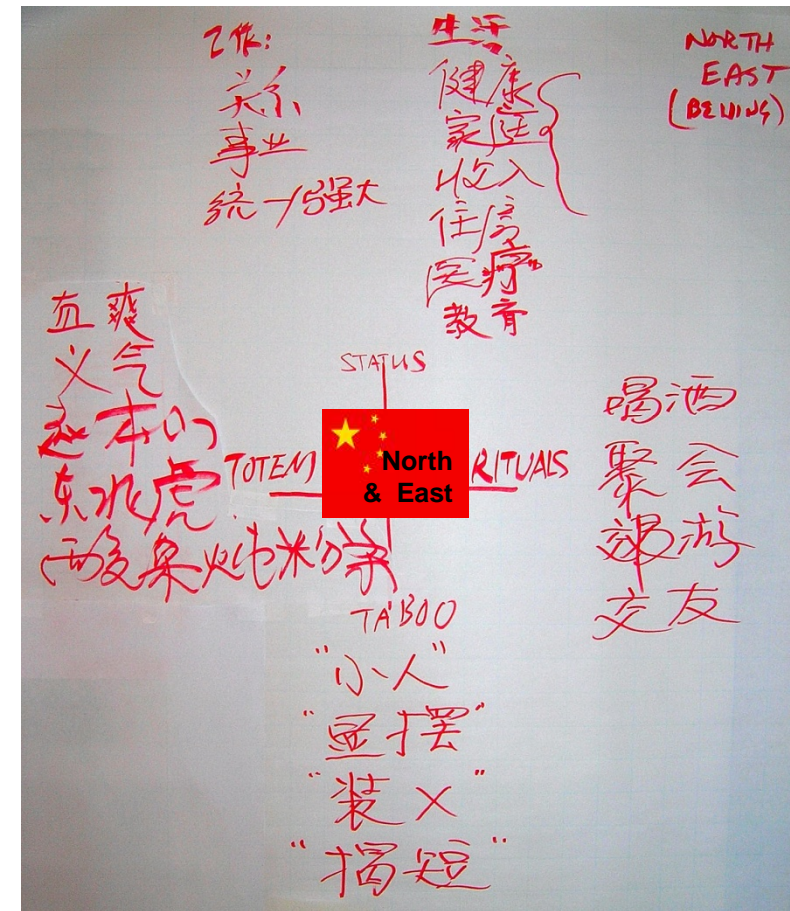 工作:
关系
事业
统一/强大
生活
健康
家庭
收入
住房
医疗
教育
NORTH
EAST
(BEIJING)
直爽
义气
赵本山
东北虎
酸菜炖米分条
STATUS
TOTEM
North
& East
RITUALS
TABOO
喝酒
聚会
郊游
交友
"小人"
"显摆"
"装X"
"揭短"